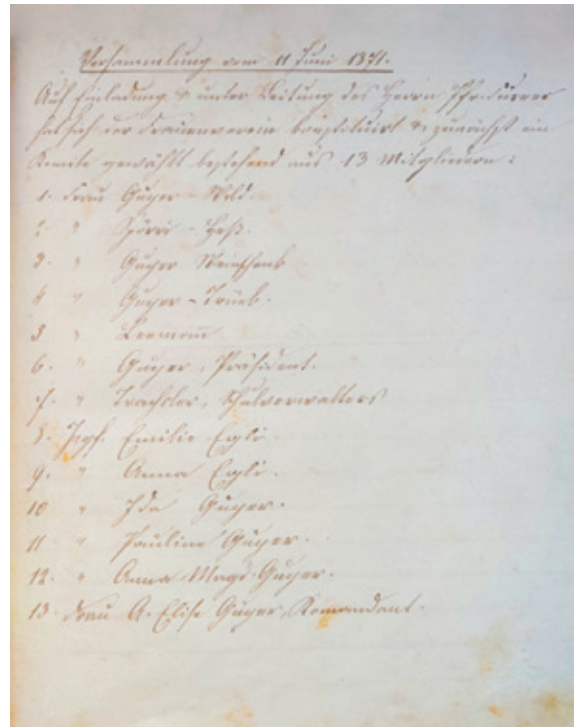 Versammlung vom 11 Juni 1871.
Auf Einladung & unter Leitung des Herrn Pfr.
hat sich der Frauenverein constituirt & zunächst ein
Komite gewählt bestehend aus 13 Mitgliedern:
1. Frau Guyer - Wild.
2. " Spörri - Heß.
3. " Guyer Weinschenk
4. " Guyer - Trüeb.
5. " Leemann
6. " Guyer, Präsident.
7. " Trachsler, Schulverwalters
8. Jgfr. Emilie Egli.
9. " Anna Egli.
10 " Ida Guyer.
11 " Pauline Guyer.
12. " Anna Magd. Guyer.
13. Frau A. Elise Guyer, Komandant.